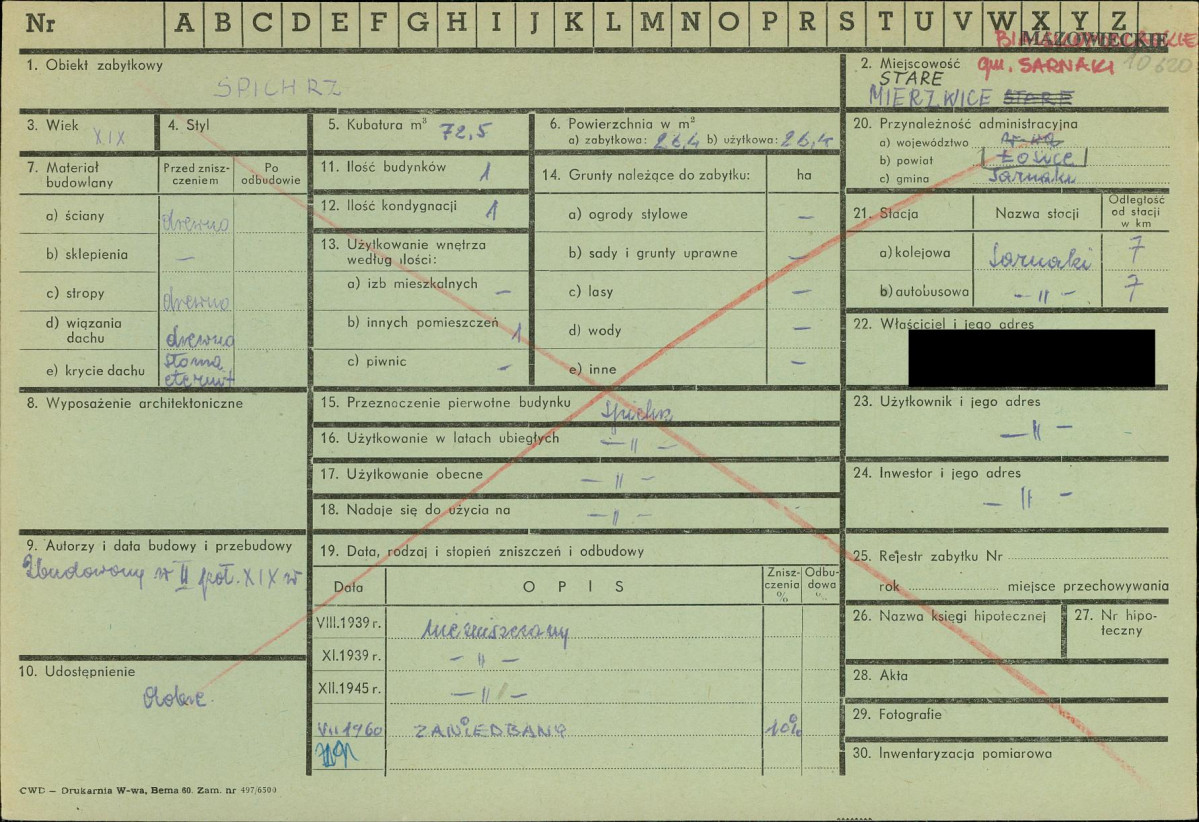 Nr A B C D E F G H I J K L M N O P R S T U V W X Y Z
MAZOWIECKIE
1. Obiekt zabytkowy
SPICHRZ
2. Miejscowość gm. SARNAKI 10620
STARE
MIERZWICE STARE
3. Wiek XIX
4. Styl
5. Kubatura m³ 72,5
6. Powierzchnia w m²
a) zabytkowa: 26,4 b) użytkowa: 26,4
7. Materiał budowlany
Przed zniszczeniem
Po odbudowie
a) ściany drewno
b) sklepienia —
c) stropy drewno
d) wiązania dachu drewno
e) krycie dachu słoma eternit
8. Wyposażenie architektoniczne
9. Autorzy i data budowy i przebudowy
Zbudowany w II poł. XIX w
10. Udostępnienie
dobre
11. Ilość budynków 1
12. Ilość kondygnacji 1
13. Użytkowanie wnętrza według ilości:
a) izb mieszkalnych —
b) innych pomieszczeń 1
c) piwnic —
14. Grunty należące do zabytku: ha
a) ogrody stylowe —
b) sady i grunty uprawne —
c) lasy —
d) wody —
e) inne —
15. Przeznaczenie pierwotne budynku spichrz
16. Użytkowanie w latach ubiegłych — " —
17. Użytkowanie obecne — " —
18. Nadaje się do użycia na — " —
19. Data, rodzaj i stopień zniszczeń i odbudowy
Data OPIS Zniszczenia % Odbudowa %
VIII.1939 r. niezniszczony
XI.1939 r. — " —
XII.1945 r. — " —
VII 1960 ZANIEDBANY 10%
20. Przynależność administracyjna
a) województwo
b) powiat Łosice
c) gmina Sarnaki
21. Stacja Nazwa stacji Odległość od stacji w km
a) kolejowa Sarnaki 7
b) autobusowa — " — 7
22. Właściciel i jego adres
23. Użytkownik i jego adres
— " —
24. Inwestor i jego adres
— " —
25. Rejestr zabytku Nr
rok miejsce przechowywania
26. Nazwa księgi hipotecznej
27. Nr hipoteczny
28. Akta
29. Fotografie
30. Inwentaryzacja pomiarowa
CWD — Drukarnia W-wa, Bema 60. Zam. nr 497/6500